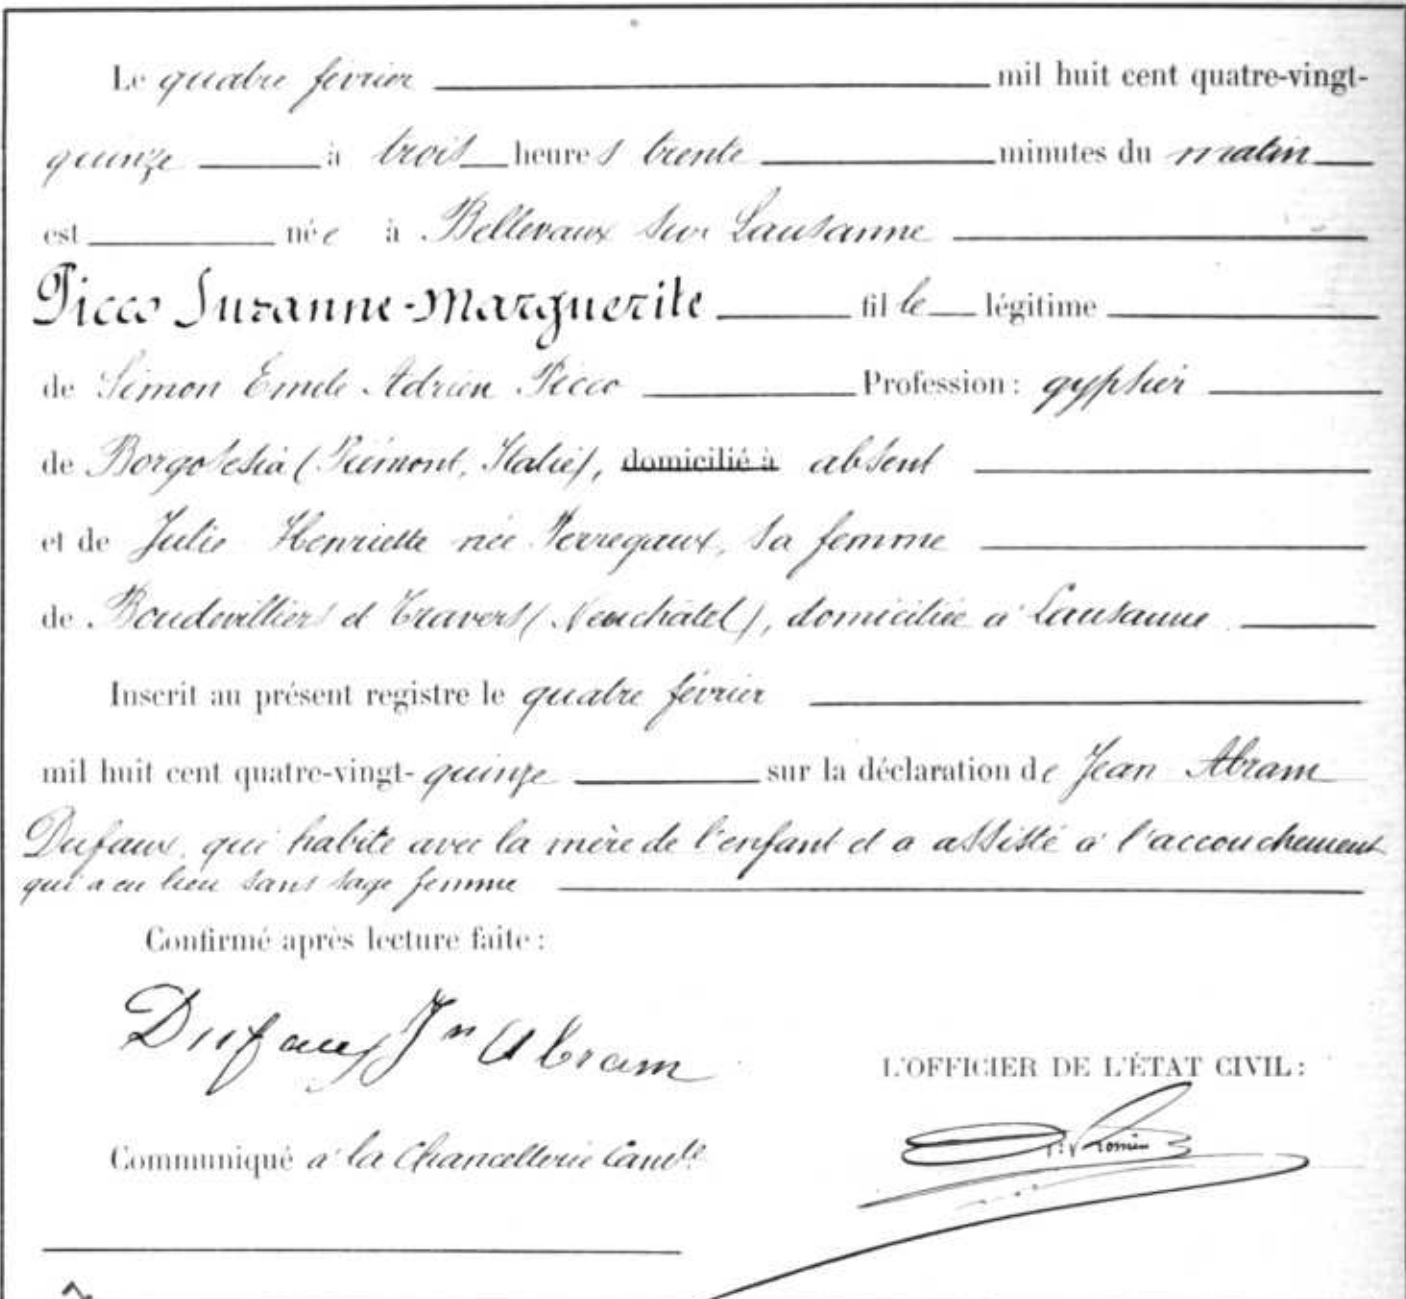 Le quatre février mil huit cent quatre-vingt-
quinze à trois heures trente minutes du matin
est née à Bellevaux sur Lausanne
Picco Suzanne-Marguerite fille légitime
de Simon Emile Adrien Picco Profession: gypsier
de Borgosesia (Piémont, Italie), domicilié à absent
et de Julie Henriette née Perregaux, sa femme
de Boudevilliers et Travers (Neuchâtel), domiciliée à Lausanne
Inscrit au présent registre le quatre février
mil huit cent quatre-vingt-quinze sur la déclaration de Jean Abram
Dufaux, qui habite avec la mère de l'enfant et a assisté à l'accouchement
qui a eu lieu sans sage femme
Confirmé après lecture faite:
Dufaux Jn Abram
L'OFFICIER DE L'ÉTAT CIVIL:
Communiqué à la Chancellerie Cantle